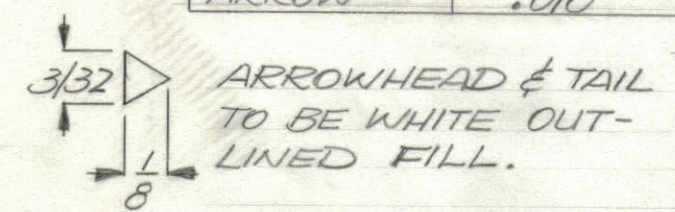 ARROW .010
3/32 ARROWHEAD & TAIL
TO BE WHITE OUT-
LINED FILL.
1/8